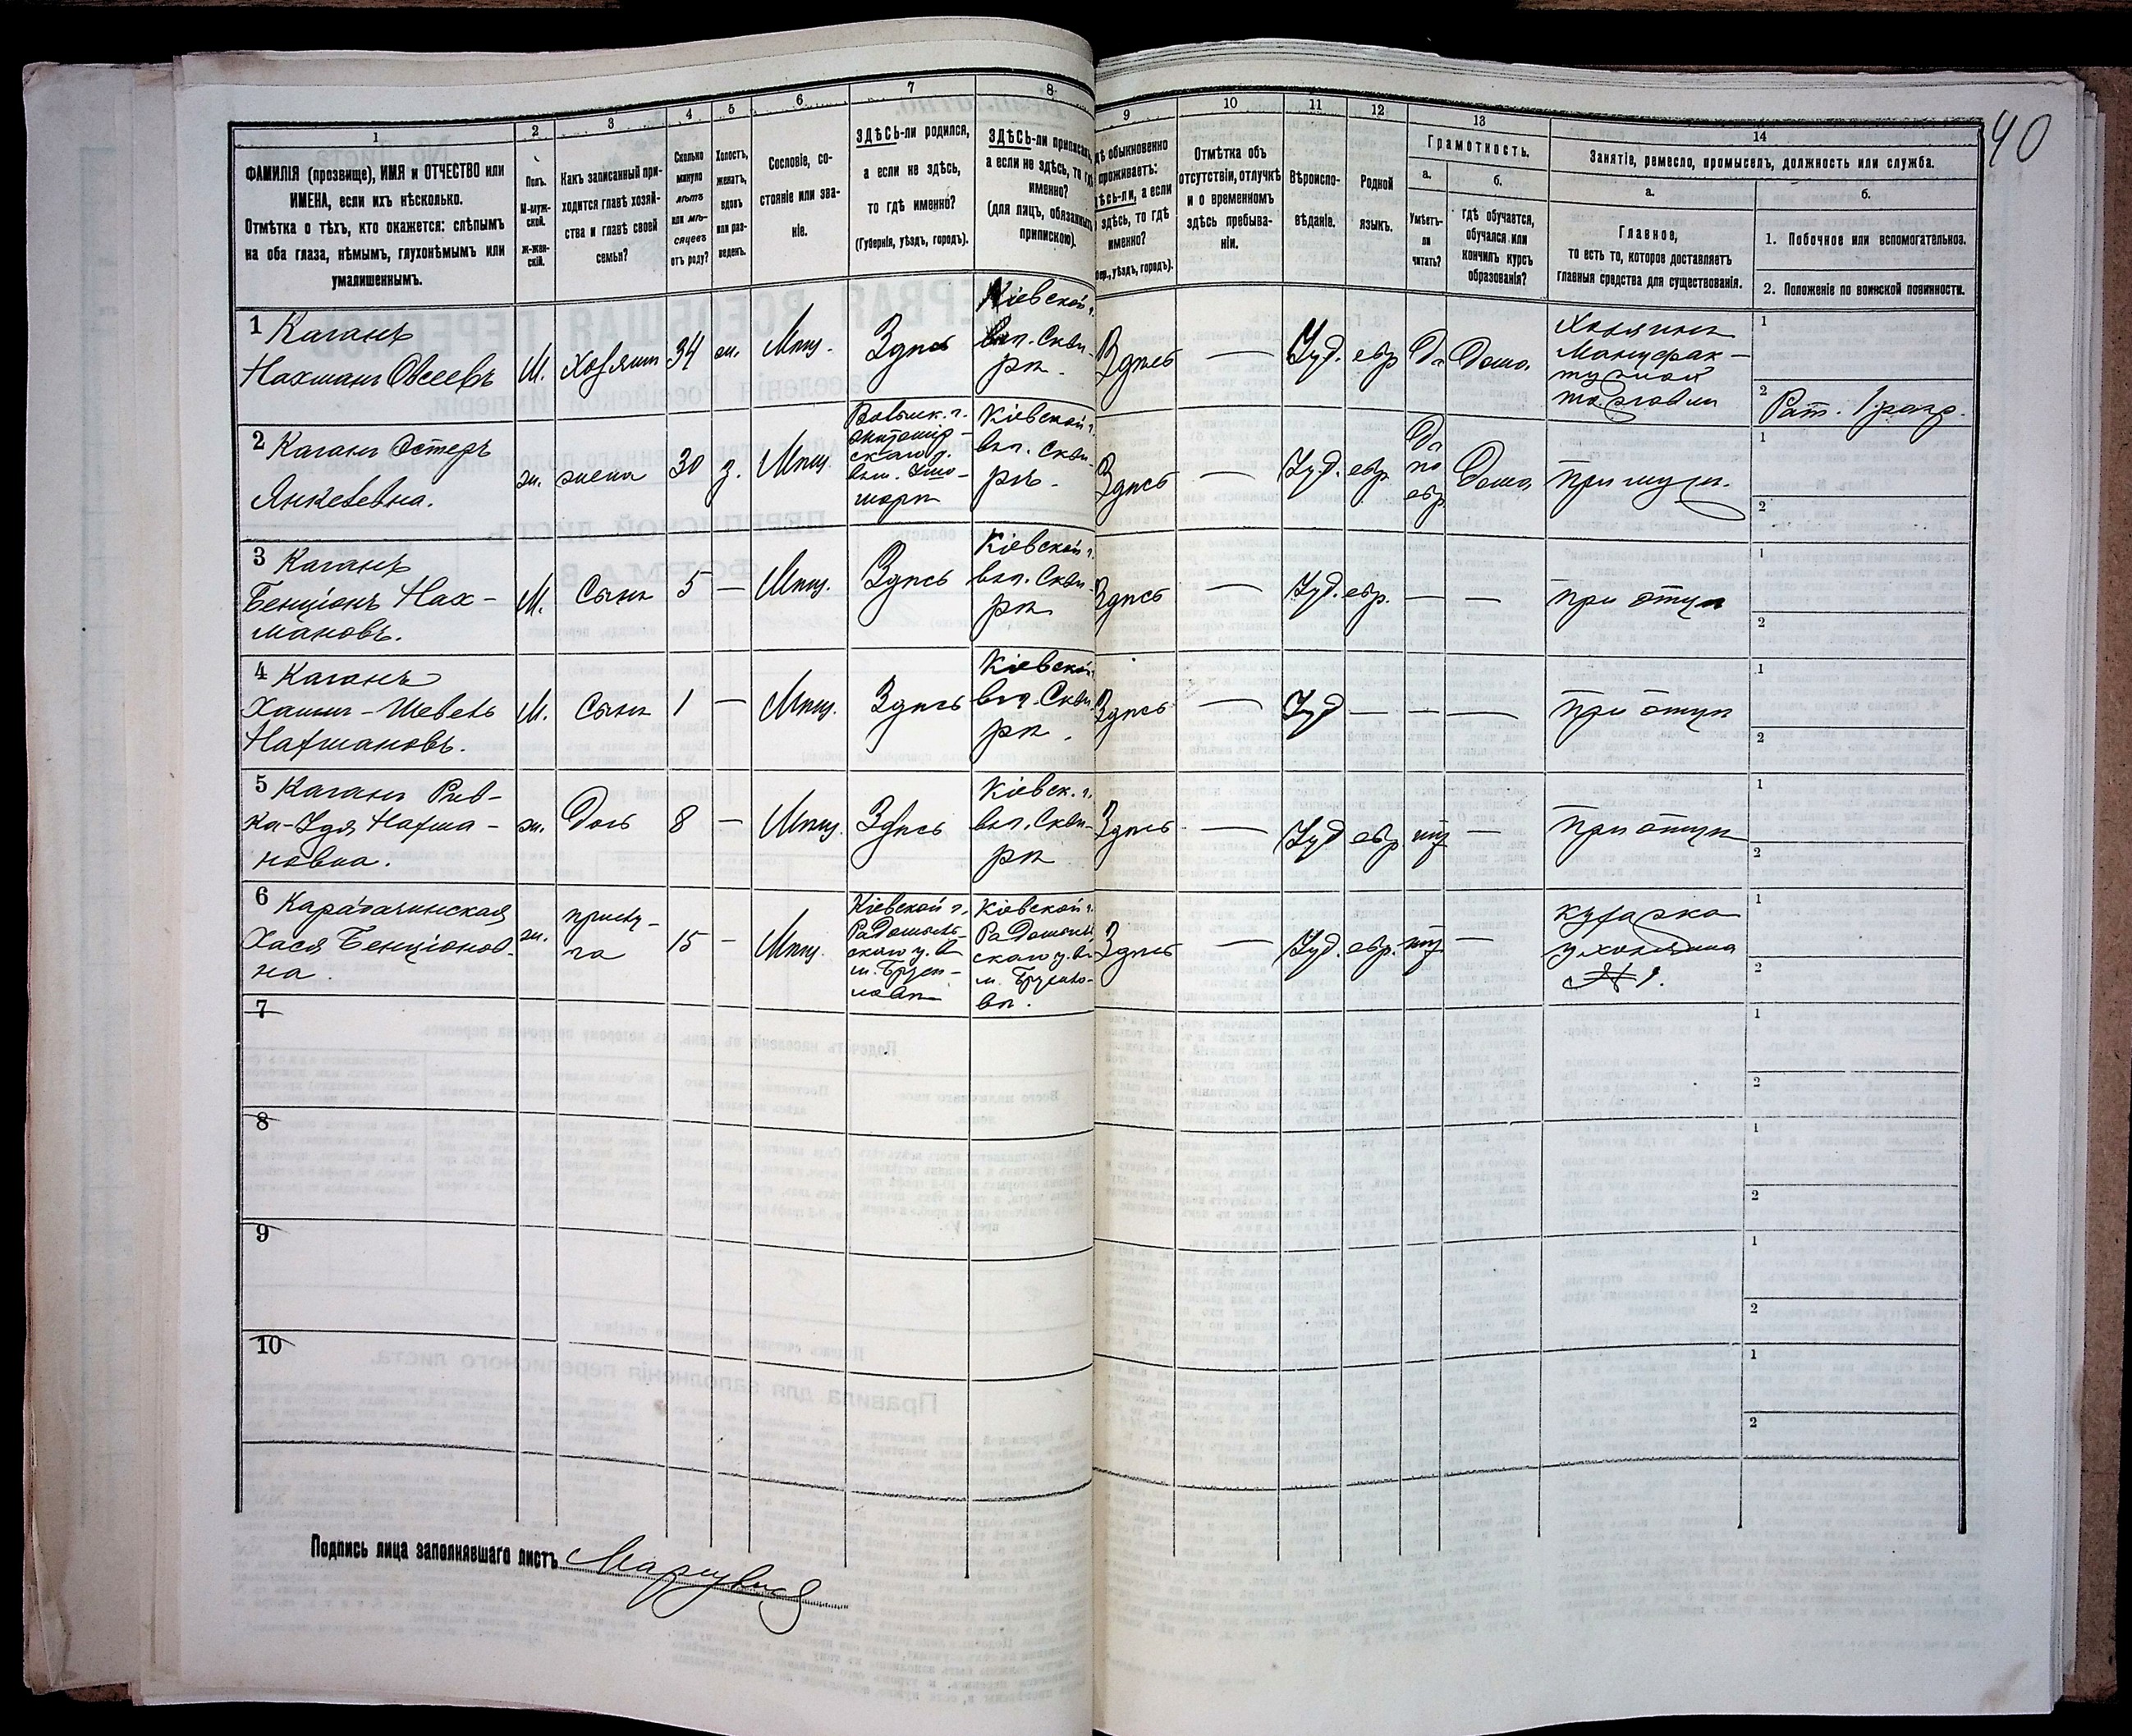 1
2
3
4
5
6
7
8
9
10
11
12
13
14
40
ФАМИЛІЯ (прозвище), ИМЯ и ОТЧЕСТВО или
ИМЕНА, если ихъ нѣсколько.
Отмѣтка о тѣхъ, кто окажется: слѣпымъ
на оба глаза, нѣмымъ, глухонѣмымъ или
умалишеннымъ.
Полъ.
М-муж-
ской.
Ж-жен-
скій.
Какъ записанный при-
ходится главѣ хозяй-
ства и главѣ своей
семьи?
Сколько
минуло
лѣтъ
или мѣ-
сяцевъ
отъ роду?
Холостъ,
женатъ,
вдовъ
или раз-
веденъ.
Сословіе, со-
стояніе или зва-
ніе.
ЗДѢСЬ-ли родился,
а если не здѣсь,
то гдѣ именно?
(Губернія, уѣздъ, городъ).
ЗДѢСЬ-ли приписанъ,
а если не здѣсь, то гдѣ
именно?
(для лицъ, обязанныхъ
припискою).
дѣ обыкновенно
проживаетъ:
здѣсь-ли, а если
здѣсь, то гдѣ
именно?
бер., уѣздъ, городъ).
Отмѣтка объ
отсутствіи, отлучкѣ
и о временномъ
здѣсь пребыва-
ніи.
Вѣроиспо-
вѣданіе.
Родной
языкъ.
Грамотность.
а.
Умѣетъ-
ли
читать?
б.
гдѣ обучается,
обучался или
кончилъ курсъ
образованія?
Занятіе, ремесло, промыселъ, должность или служба.
а.
Главное,
то есть то, которое доставляетъ
главныя средства для существованія.
б.
1. Побочное или вспомогательное.
2. Положеніе по воинской повинности.
1 Каганъ
Нахманъ Овсеевъ
М.
Хозяинъ
34
ж.
Мѣщ.
Здѣсь
Кіевской г.
въ г. Скви-
рѣ.
Здѣсь
—
Іуд.
евр
Да
Дома.
Хозяинъ
Мануфак-
турной
торговли
1
2 Рат. 1 разр.
2 Каганъ Эстеръ
Янкелевна.
ж.
жена
30
з.
Мѣщ.
Волынк. г.
Житомір-
скаго у.
Кіевской г.
въ г. Скви-
рѣ.
Здѣсь
—
Іуд.
евр.
Да
по
евр
Дома
При мужѣ.
1
2
3 Каганъ
Бенціонъ Нах-
мановъ.
М.
Сынъ
5
—
Мѣщ.
Здѣсь
Кіевской г.
въ г. Скви-
рѣ
Здѣсь
—
Іуд.
евр.
—
—
При отцѣ
1
2
4 Каганъ
Хаимъ-Шевель
Нахмановъ.
М.
Сынъ
1
—
Мѣщ.
Здѣсь
Кіевской г.
въ г. Скви-
рѣ.
Здѣсь
—
Іуд
—
—
—
При отцѣ
1
2
5 Каганъ Рив-
ка-Удя Нахма-
новна.
ж.
Дочь
8
—
Мѣщ.
Здѣсь
Кіевск. г.
въ г. Скви-
рѣ
Здѣсь
—
Іуд
евр.
нѣт
—
При отцѣ
1
2
6 Карабачинская
Хася Бенціонов-
на.
ж.
прислу-
га
15
—
Мѣщ.
Кіевской г.
Радомысль-
скаго у. въ
м. Бруси-
ловѣ
Кіевской г.
Радомысль
скаго у. въ
м. Брусило-
вѣ.
Здѣсь
—
Іуд.
евр.
нѣт
—
кухарка
у хозяина
№ 1.
1
2
7
1
2
8
1
2
9
1
2
10
1
2
Подпись лица заполнявшаго листъ